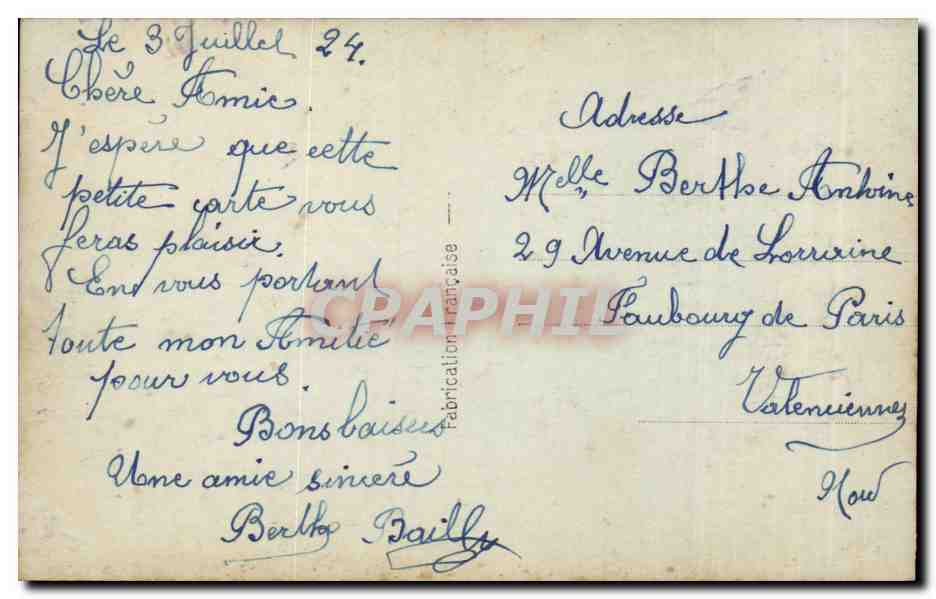 Le 3 Juillet 24.
Chère Amie.
J'espère que cette
petite carte vous
feras plaisir.
En vous portant
toute mon Amitié
pour vous.
Bons baisers
Une amie sincère
Berthe Bailly
Fabrication Française
CPAPHIL
Adresse
Melle Berthe Antoine
29 Avenue de Lorraine
Faubourg de Paris
Valenciennes
Nord